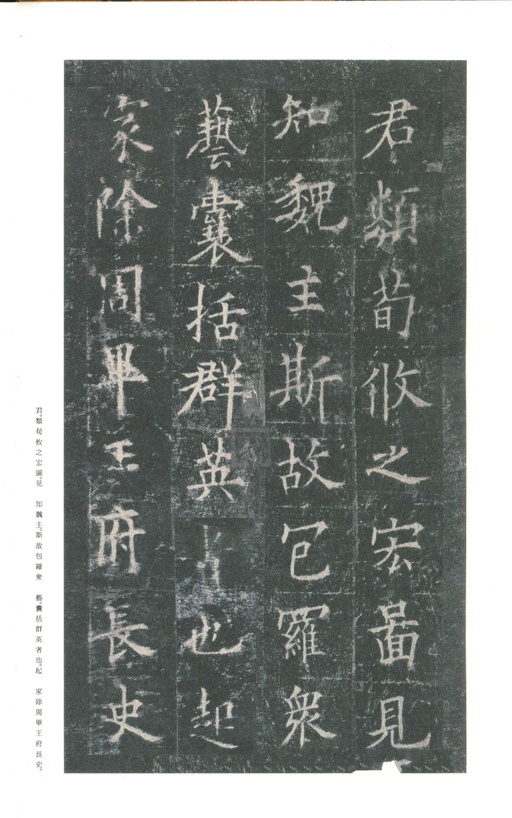 君類荀攸之宏啚見
知魏主斯故包羅衆
藝囊括群英者也起
家除周畢王府長史
君類荀攸之宏圖見 知魏主斯故包羅衆 藝囊括群英者也起 家除周畢王府長史